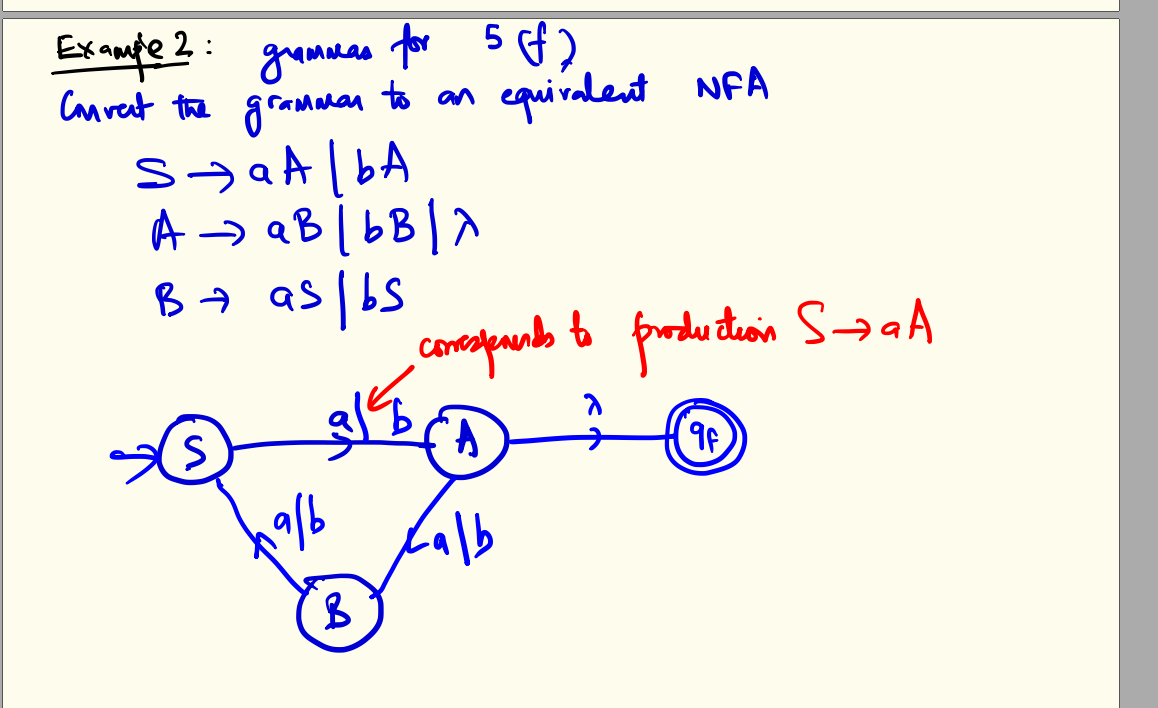 Example 2: grammar for 5(f)
Convert the grammar to an equivalent NFA
S → aA | bA
A → aB | bB | λ
B → aS | bS
corresponds to production S → aA
a|b
λ
S
A
qf
a|b
a|b
B